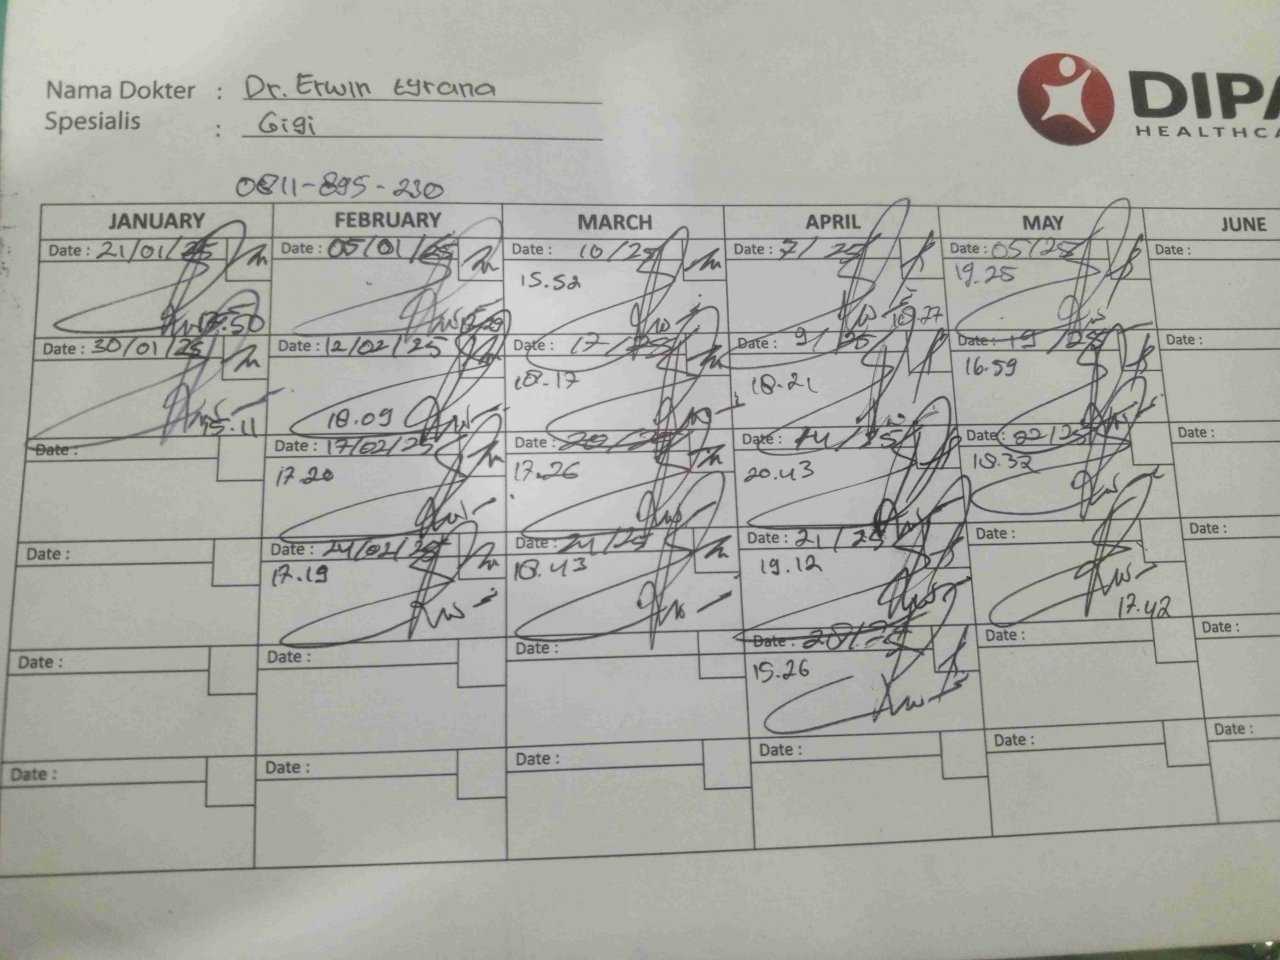 Nama Dokter : Dr. Erwin tyrana
Spesialis : Gigi
DIPA
HEALTHCA
0811-895-230
JANUARY FEBRUARY MARCH APRIL MAY JUNE
Date : 21/01/25 Date : 05/01/25 Date : 10/25 Date : 7/25 Date : 05/25 Date :
15.52 19.25
Date : 30/01/25 Date : 12/02/25 Date : 17/25 Date : 9/25 Date : 19/25 Date :
15.11 18.09 18.17 18.21 16.59
Date : Date : 17/02/25 Date : 20/25 Date : 14/25 Date : 22/25 Date :
17.20 17.26 20.43 18.32
Date : Date : 24/02/25 Date : 24/25 Date : 21/25 Date : Date :
17.19 18.43 19.12 17.42
Date : Date : Date : Date : 28/25 Date : Date :
15.26
Date : Date : Date : Date : Date : Date :